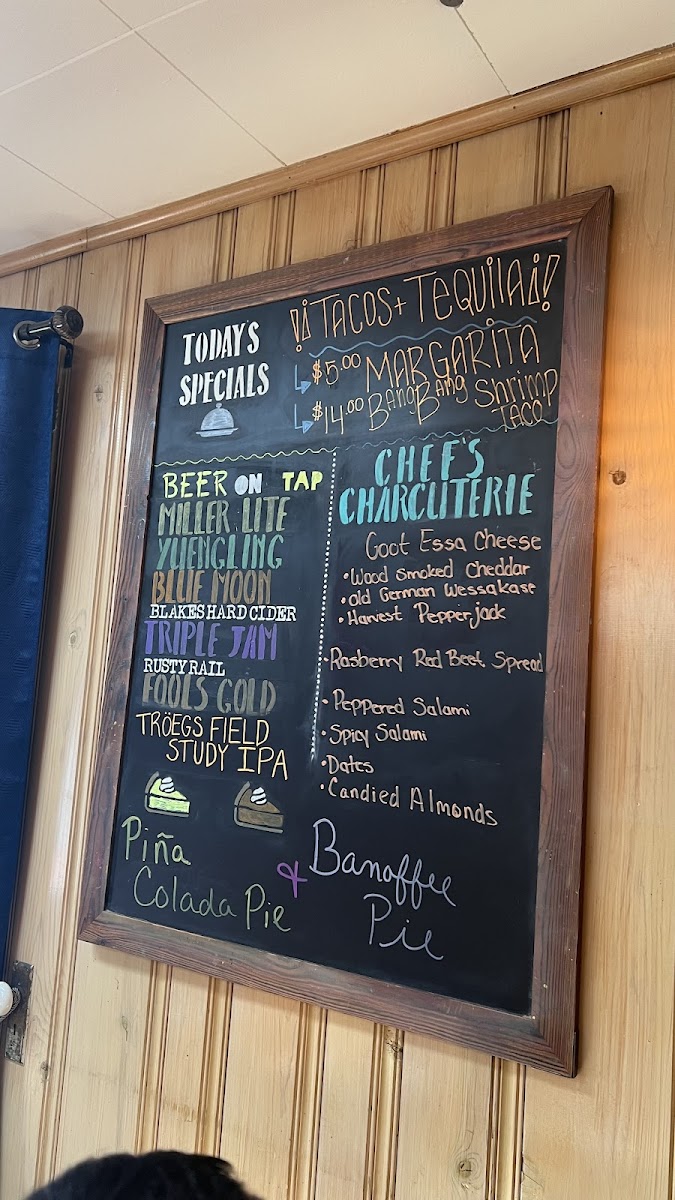 TODAY'S
SPECIALS
¡¡TACOS + TEQUILA¡!
$5.00 MARGARITA
$14.00 BANG BANG Shrimp
TACO
BEER ON TAP
MILLER LITE
YUENGLING
BLUE MOON
BLAKES HARD CIDER
TRIPLE JAM
RUSTY RAIL
FOOLS GOLD
TRÖEGS FIELD
STUDY IPA
CHEF'S
CHARCUTERIE
Goot Essa Cheese
• Wood Smoked Cheddar
• Old German Wessakase
• Harvest Pepperjack
• Rasberry Red Beet Spread
• Peppered Salami
• Spicy Salami
• Dates
• Candied Almonds
Piña
Colada Pie
& Banoffee
Pie